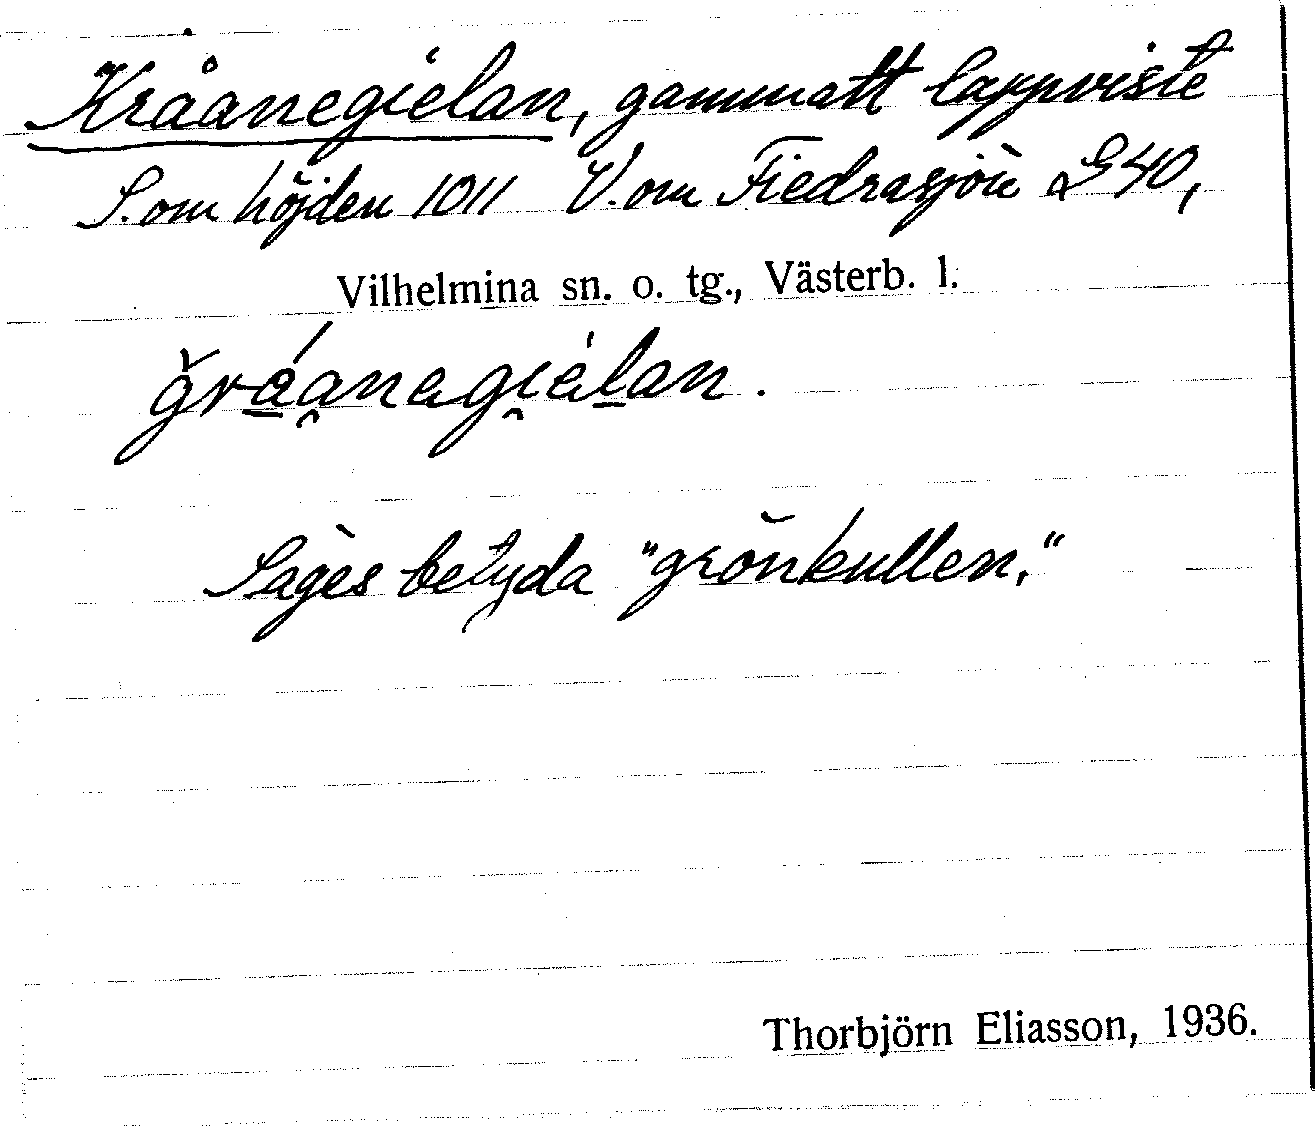 Kråanegielan, gammalt lappviste
S. om höjden 1011 V. om Fiedrasjön L 40,
Vilhelmina sn. o. tg., Västerb. l.
Säges betyda "grönkullen."
Thorbjörn Eliasson, 1936.